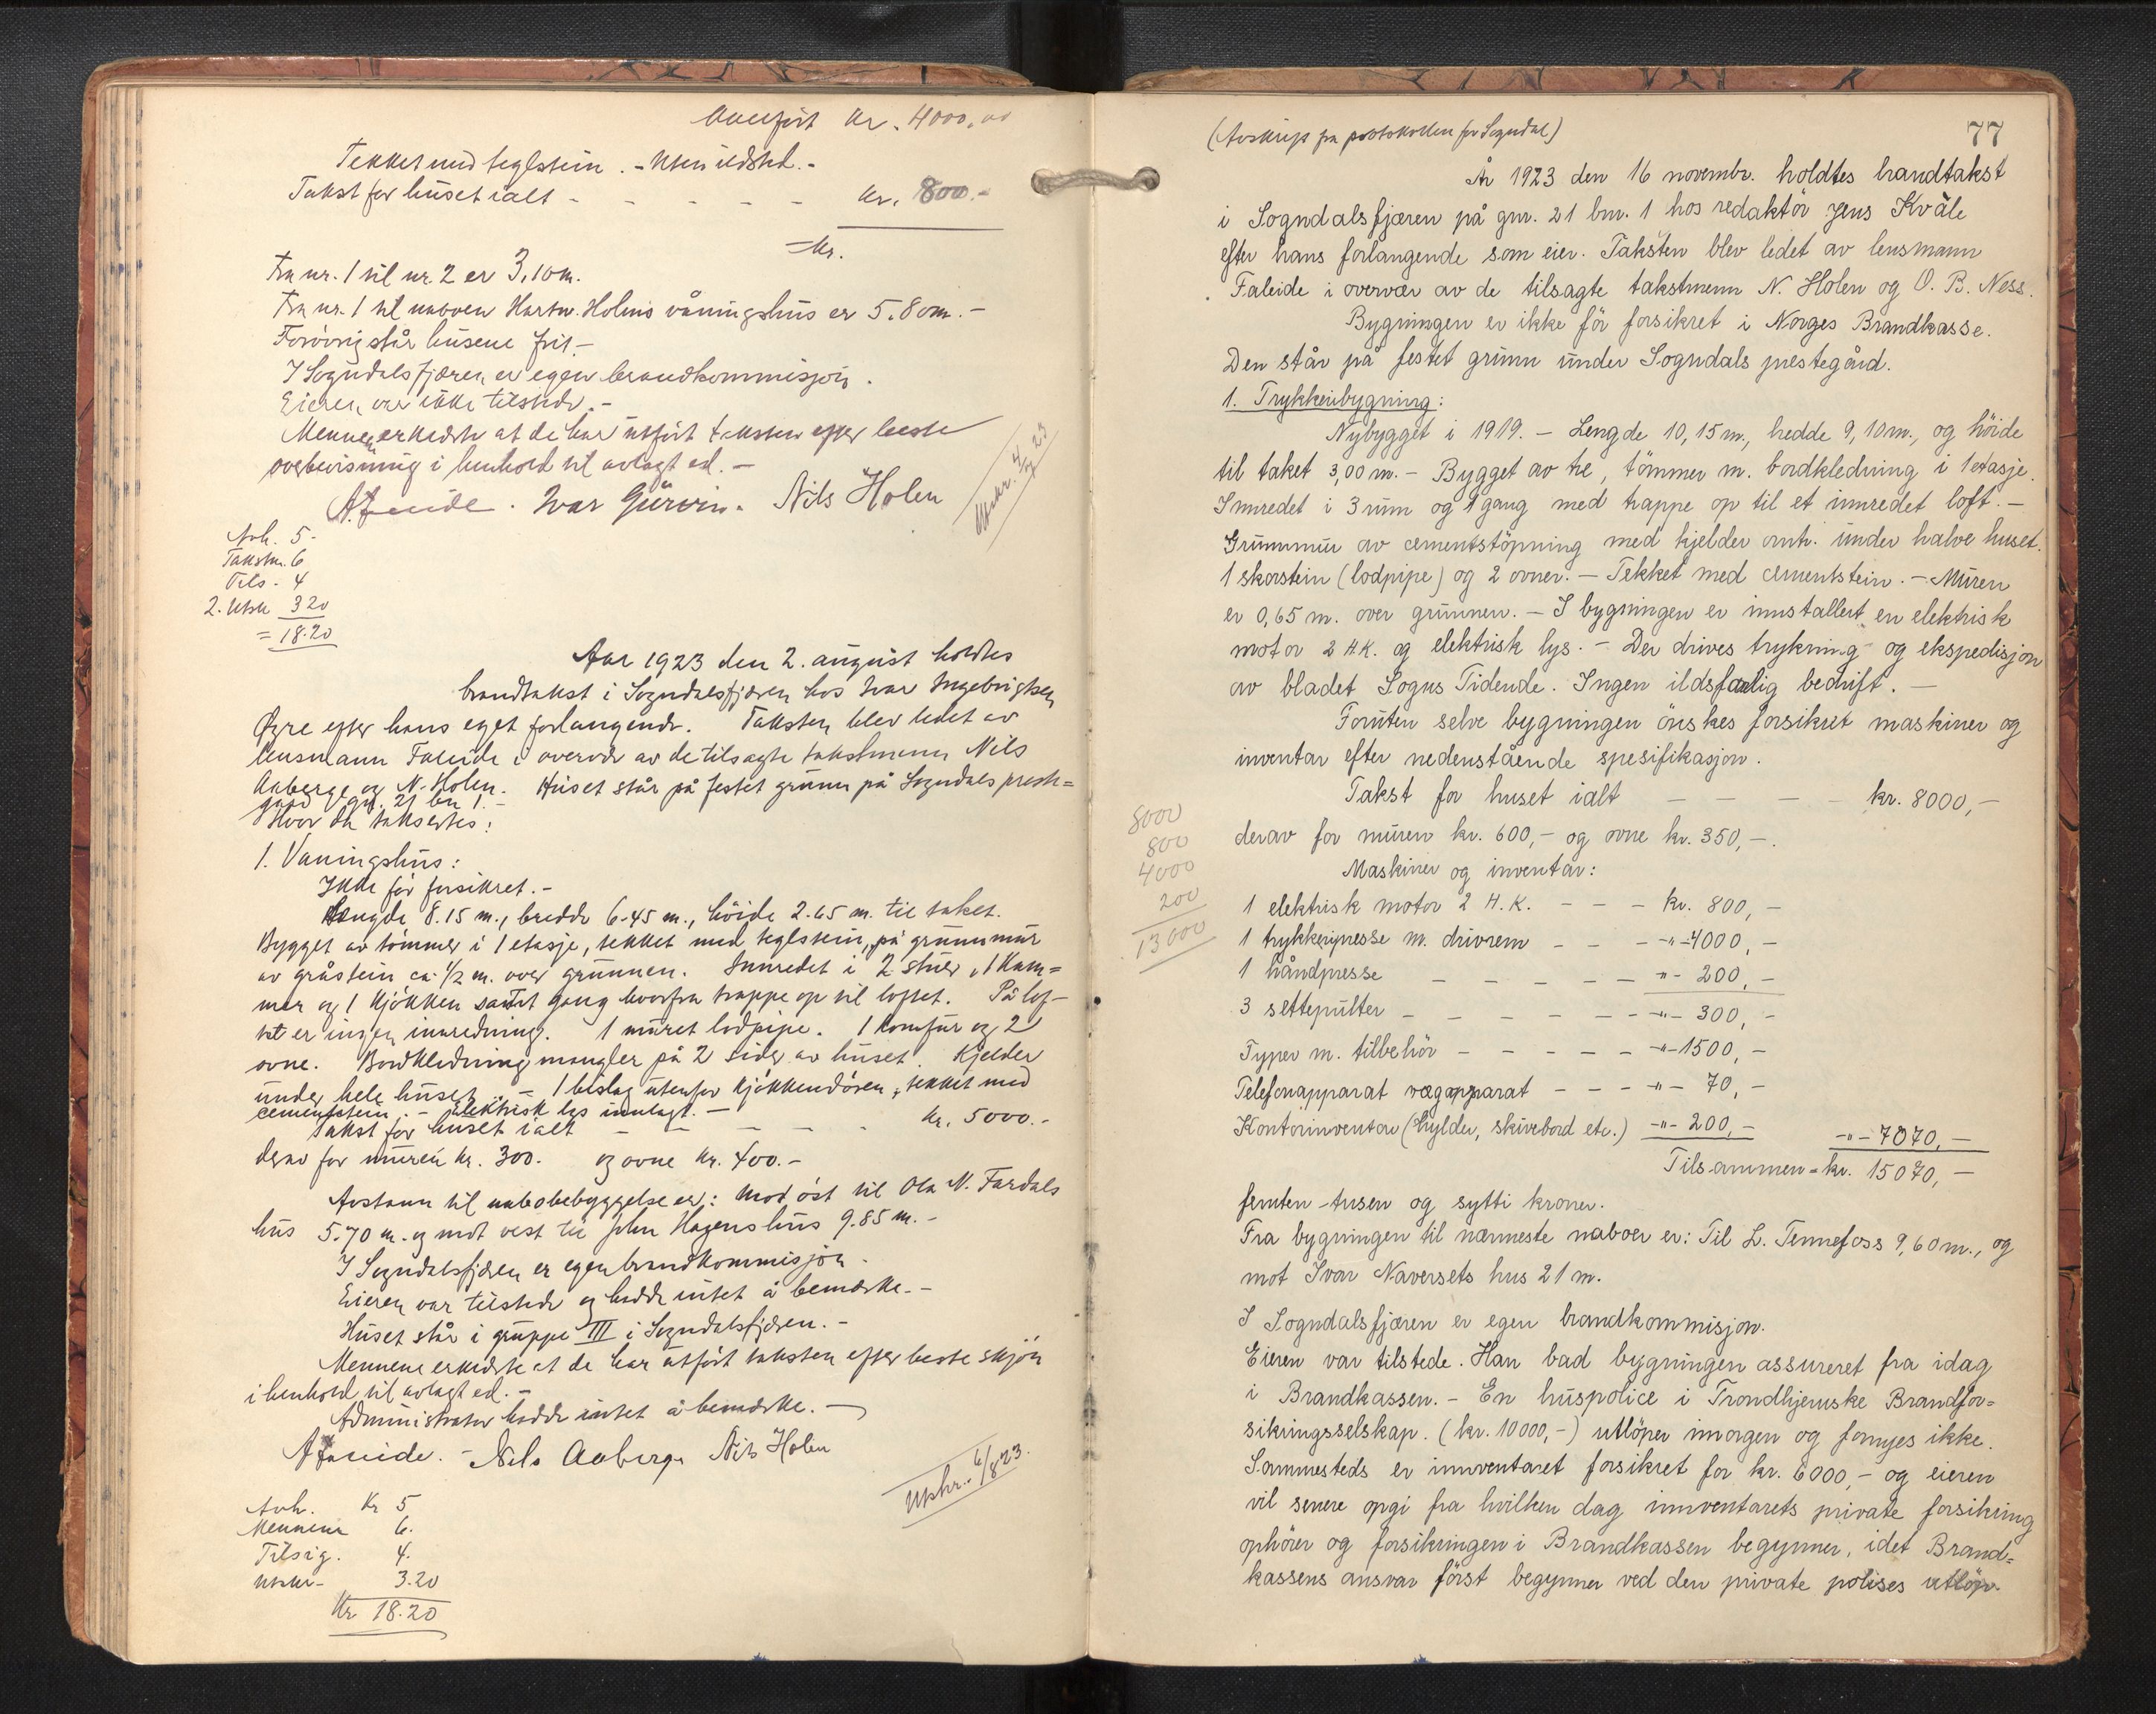 Overført kr. 4000,00
Tekket med teglstein. - Uten ildsted. -
Takst for huset ialt - - - - - kr. 800.-
Kr.
Fra nr. 1 til nr. 2 er 3,10 m.
Fra nr. 1 til naboen Hartv. Holms våningshus er 5.80 m. -
Forøvrig står husene frit. -
I Sogndalsfjæren er egen brandkommisjon.
Eieren var ikke tilstede. -
Mennene erklærte at de har utført taksten efter beste
overbevisning i henhold til avlagt ed. -
A. Faleide. Ivar Gurvin. Nils Holen
Utskr. 4/7 23
Avh. 5 -
Takstm. 6
Tils - 4
2. Utsk 320
= 18.20
Aar 1923 den 2. august holdtes
brandtakst i Sogndalsfjæren hos Ivar Ingebrigtsen
Øyre efter hans eget forlangende. Taksten blev ledet av
lensmann Faleide i overvær av de tilsagte takstmenn Nils
Aaberge og N. Holen. Huset står på festet grunn på Sogndals preste=
gård gnr. 21 bnr 1. -
Hvor da takseertes:
1. Vaningshus:
Ikke før forsikret. -
Længde 8.15 m., bredde 6.45 m., höide 2.65 m. til taket.
Bygget av tømmer i 1 etasje, tekket med teglstein, på grunnmur
av gråstein ca. 1/2 m. over grunnen. Innredet i 2 stuer, 1 kam=
mer og 1 kjøkken samt gang hvorfra trappe op til loftet. På lof-
tet er ingen innredning. 1 muret lodpipe. 1 komfur og 2
ovne. Bordkledning mangler på 2 sider av huset. Kjelder
under hele huset. - 1 bislag utenfor kjøkkendören, tekket med
cementstein. - Elektrisk lys innlagt. -
Takst for huset ialt - - - - - kr. 5000.-
derav for muren kr. 300. og ovne kr. 400.-
Avstann til nabobebyggelse er: mot öst til Ola N. Fardals
hus 5.70 m. og mot vest til John Hagens hus 9.85 m. -
I Sogndalsfjæren er egen brandkommisjon.
Eieren var tilstede og hadde intet å bemærke. -
Huset står i gruppe III i Sogndalsfjæren. -
Mennene erklærte at de har utfört taksten efter beste skjön
i henhold til avlagt ed. -
Administrator hadde intet å bemærke. -
A Faleide. - Nils Aaberge Nils Holen
Utskr. 6/8 23.
Avh. Kr 5
Mennene 6.
Tilsig. 4.
Utskr - 3.20
Kr 18.20
77
(Avskrift fra protokollen for Sogndal)
År 1923 den 16 novembr. holdtes brandtakst
i Sogndalsfjæren på gnr. 21 bnr. 1 hos redaktör Jens Kvåle
efter hans forlangende som eier. Taksten blev ledet av lensmann
Faleide i overvær av de tilsagte takstmenn N. Holen og O. B. Ness.
Bygningen er ikke för forsikret i Norges Brandkasse.
Den står på festet grunn under Sogndals prestegård.
1. Trykkeribygning:
Nybygget i 1919. - Lengde 10,15 m., bredde 9,10 m., og höide
til taket 3,00 m. - Bygget av tre, tömmer m. bordkledning i 1 etasje.
Innredet i 3 rum og 1 gang med trappe op til et innredet loft. -
Grunnmur av cementstöpning med kjelder omtr. under halve huset.
1 skorstein (lodpipe) og 2 ovner. - Tekket med cementstein. - Muren
er 0,65 m. over grunnen. - I bygningen er innstallert en elektrisk
motor 2 H.K. og elektrisk lys. - Der drives trykning og ekspedisjon
av bladet Sogns Tidende. Ingen ildsfarlig bedrift. -
Foruten selve bygningen önskes forsikret maskiner og
inventar efter nedenstående spesifikasjon.
Takst for huset ialt - - - - kr. 8000,-
derav for muren kr. 600,- og ovne kr. 350,-.
Maskiner og inventar:
8000
800
4000
200
13000
1 elektrisk motor 2 H.K. - - - kr. 800,-
1 trykkeripresse m. drivrem - - - -"- 4000,-
1 håndpresse - - - - - "- 200,-
3 settepulter - - - - - - -"- 300,-
Typer m. tilbehör - - - - - -"- 1500,-
Telefonapparat vægapparat - - - -"- 70,-
Kontorinventar (hylder, skivebord etc.) -"- 200,- -"- 7070,-
Tilsammen = kr. 15070,-
femten-tusen og sytti kroner.
Fra bygningen til nærmeste naboer er: Til L. Tennefoss 9,60 m., og
mot Ivar Naversets hus 21 m.
I Sogndalsfjæren er egen brandkommisjon.
Eieren var tilstede. Han bad bygningen assureret fra idag
i Brandkassen. - En huspolice i Trondhjemske Brandfor=
sikringsselskap. (kr. 10000,-) utlöper imorgen og fornyes ikke.
Sammesteds er innventaret forsikret for kr. 6000,- og eieren
vil senere opgi fra hvilken dag innventarets private forsikring
ophörer og forsikringen i Brandkassen begynner, idet Brand=
kassens ansvar först begynner ved den private polises utlöp.